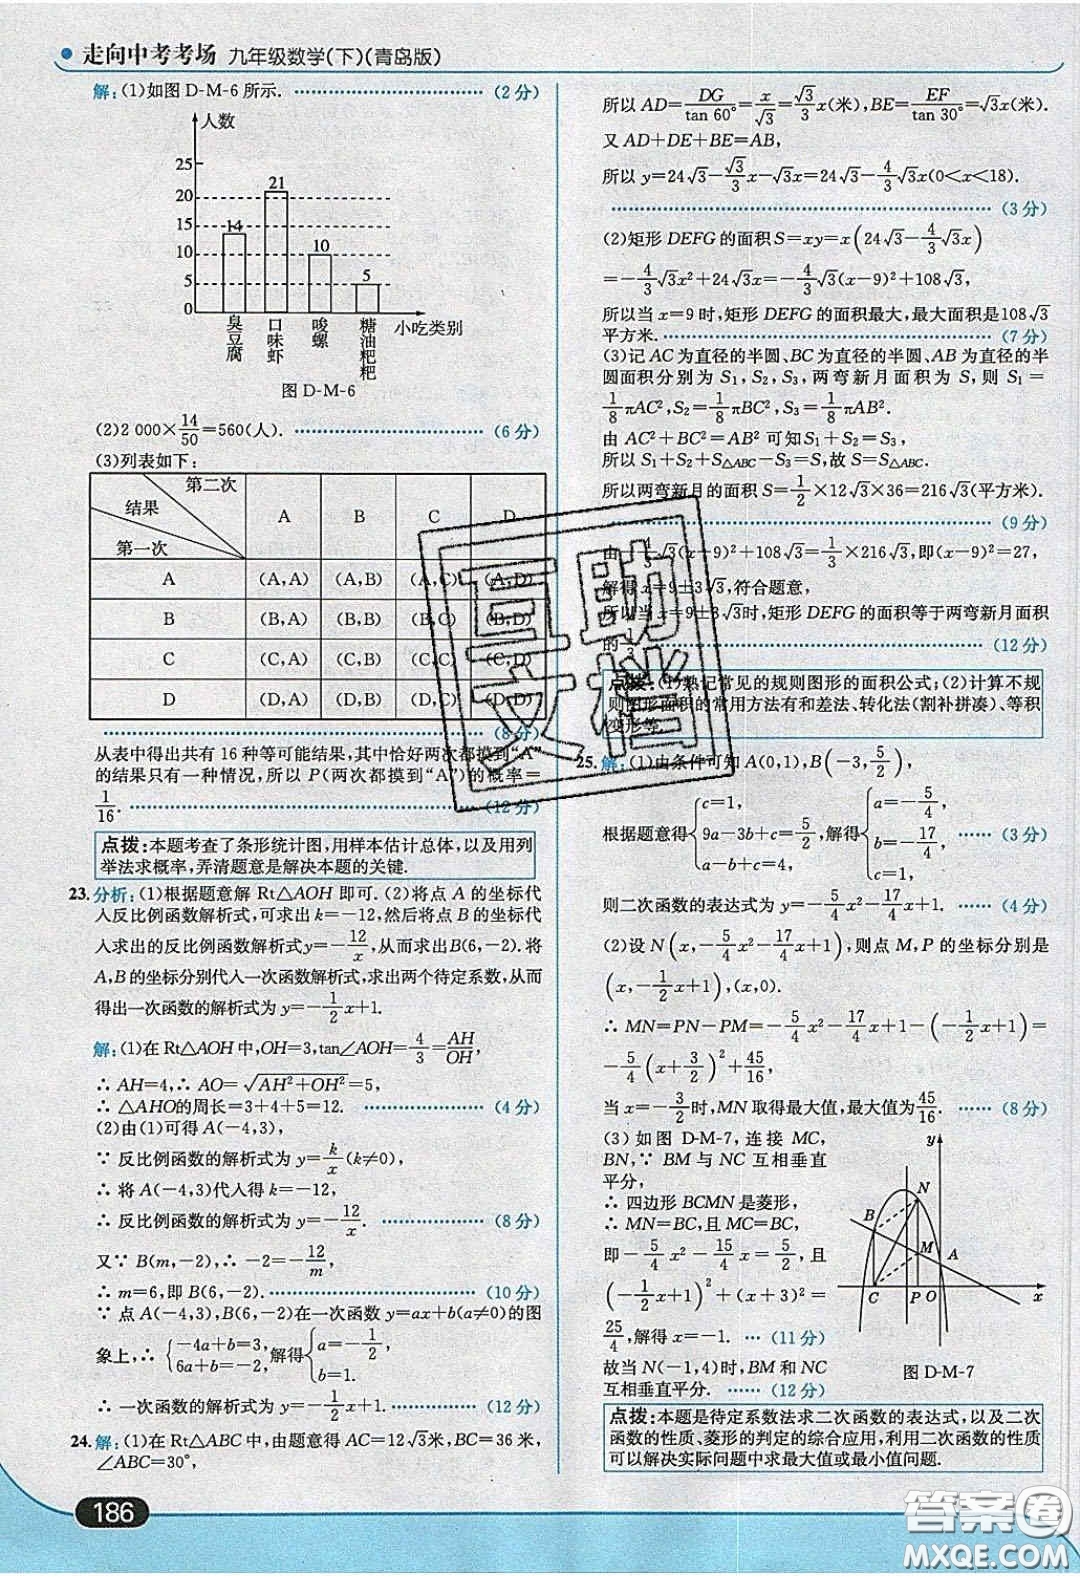 走向中考考场 九年级数学(下)(青岛版)
解:(1)如图 D-M-6 所示. (2分)
人数
25
20
15
10
5
0
14
21
10
5
臭豆腐
口味虾
唆螺
糖油粑粑
小吃类别
图 D-M-6
(2)2 000×14/50=560(人). (6分)
(3)列表如下:
第二次
结果
第一次
A B C D
A (A,A) (A,B) (A,C) (A,D)
B (B,A) (B,B) (B,C) (B,D)
C (C,A) (C,B) (C,C) (C,D)
D (D,A) (D,B) (D,C) (D,D)
(8分)
从表中得出共有 16 种等可能结果,其中恰好两次都摸到“A”
的结果只有一种情况,所以 P(两次都摸到“A”)的概率=
1/16. (12分)
点拨:本题考查了条形统计图,用样本估计总体,以及用列
举法求概率,弄清题意是解决本题的关键.
23.分析:(1)根据题意解 Rt△AOH 即可.(2)将点 A 的坐标代
入反比例函数解析式,可求出 k=-12,然后将点 B 的坐标代
入求出的反比例函数解析式y=-12/x,从而求出B(6,-2).将
A,B的坐标分别代入一次函数解析式,求出两个待定系数,从而
得出一次函数的解析式为 y=-1/2x+1.
解:(1)在 Rt△AOH 中,OH=3,tan∠AOH=4/3=AH/OH,
∴ AH=4,∴ AO=√(AH²+OH²)=5,
∴ △AHO的周长=3+4+5=12. (4分)
(2)由(1)可得 A(-4,3),
∵ 反比例函数的解析式为 y=k/x(k≠0),
∴ 将 A(-4,3)代入得 k=-12,
∴ 反比例函数的解析式为 y=-12/x. (8分)
又∵ B(m,-2),∴ -2=-12/m
∴ m=6,即 B(6,-2). (10分)
∵ 点 A(-4,3),B(6,-2)在一次函数 y=ax+b(a≠0)的图
象上,∴ {-4a+b=3, 6a+b=-2, 解得{a=-1/2, b=1.
∴ 一次函数的解析式为 y=-1/2x+1. (12分)
24.解:(1)在 Rt△ABC 中,由题意得 AC=12√3米,BC=36 米,
∠ABC=30°,
186
所以 AD=DG/tan 60°=x/√3=√3/3x(米),BE=EF/tan 30°=√3x(米).
又 AD+DE+BE=AB,
所以 y=24√3-√3/3x-√3x=24√3-4/3√3x(0<x<18).
(3分)
(2)矩形 DEFG 的面积 S=xy=x(24√3-4/3√3x)
=-4/3√3x²+24√3x=-4/3√3(x-9)²+108√3,
所以当 x=9 时,矩形 DEFG 的面积最大,最大面积是108√3
平方米. (7分)
(3)记 AC 为直径的半圆、BC 为直径的半圆、AB 为直径的半
圆面积分别为 S₁,S₂,S₃,两弯新月面积为 S,则 S₁=
1/8πAC²,S₂=1/8πBC²,S₃=1/8πAB².
由 AC²+BC²=AB² 可知S₁+S₂=S₃,
所以 S₁+S₂+S△ABC-S₃=S,故 S=S△ABC.
所以两弯新月的面积 S=1/2×12√3×36=216√3(平方米).
(9分)
由-4/3√3(x-9)²+108√3=1/3×216√3,即(x-9)²=27,
解得 x=9±3√3,符合题意,
所以当 x=9±3√3时,矩形 DEFG 的面积等于两弯新月面积
的1/3. (12分)
点拨:(1)熟记常见的规则图形的面积公式;(2)计算不规
则图形面积的常用方法有和差法、转化法(割补拼凑)、等积
变形等.
25.解:(1)由条件可知 A(0,1),B(-3,5/2),
根据题意得{c=1, 9a-3b+c=5/2, a-b+c=4, 解得{a=-5/4, b=-17/4, c=1. (3分)
则二次函数的表达式为 y=-5/4x²-17/4x+1. (4分)
(2)设 N(x,-5/4x²-17/4x+1),则点 M,P 的坐标分别是
(x,-1/2x+1),(x,0).
∴ MN=PN-PM=-5/4x²-17/4x+1-(-1/2x+1)=
-5/4(x+3/2)²+45/16
当 x=-3/2时,MN 取得最大值,最大值为45/16. (8分)
(3)如图 D-M-7,连接 MC,
BN,∵ BM 与 NC 互相垂直
平分,
∴ 四边形 BCMN 是菱形,
∴ MN=BC,且 MC=BC,
即-5/4x²-15/4x=5/2,且
(-1/2x+1)²+(x+3)²=
25/4,解得 x=-1. (11分)
故当 N(-1,4)时,BM 和 NC
互相垂直平分. (12分)
y
N
B
M
A
C P O x
图 D-M-7
点拨:本题是待定系数法求二次函数的表达式,以及二次
函数的性质、菱形的判定的综合应用,利用二次函数的性质
可以解决实际问题中求最大值或最小值问题.
答案卷
MXQE.COM